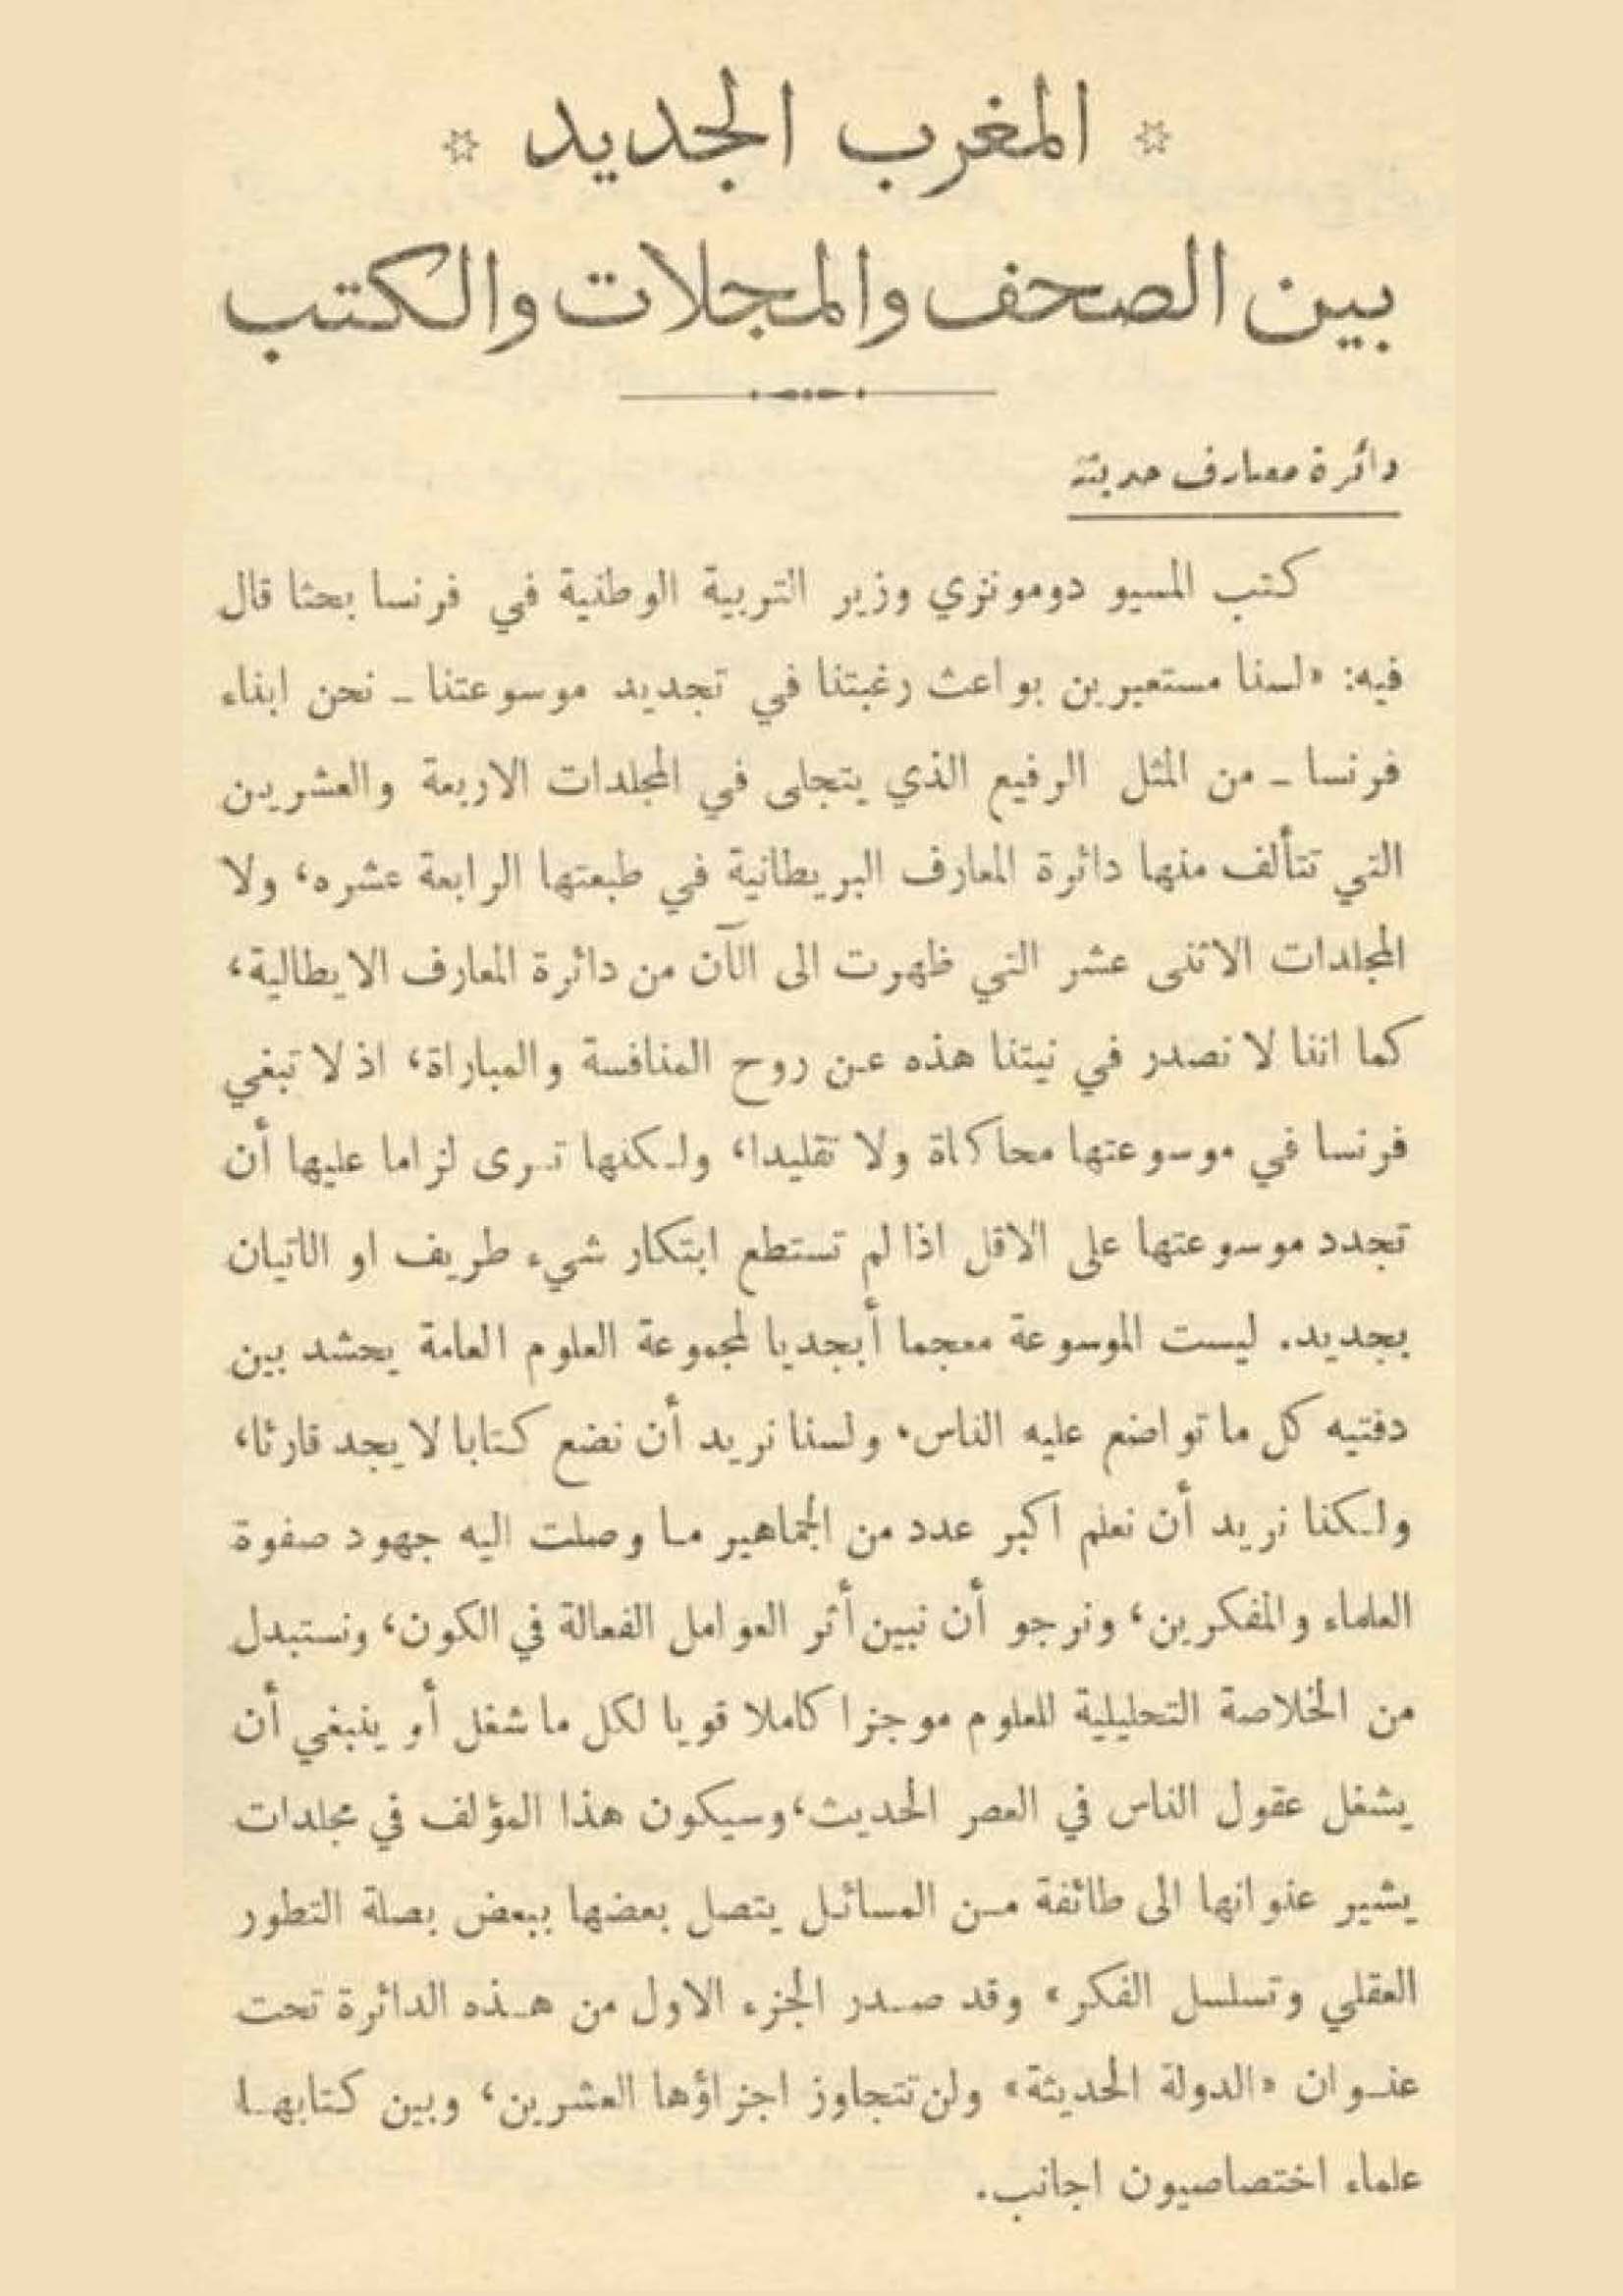 * المغرب الجديد *
بين الصحف والمجلات والكتب
دائرة معارف حديثة
كتب المسيو دومونزي وزير التربية الوطنية في فرنسا بحثا قال
فيه: «لسنا مستعيرين بواعث رغبتنا في تجديد موسوعتنا ـ نحن ابناء
فرنسا ـ من المثل الرفيع الذي يتجلى في المجلدات الاربعة والعشرين
التي تتألف منها دائرة المعارف البريطانية في طبعتها الرابعة عشره، ولا
المجلدات الاثنى عشر التي ظهرت الى الآن من دائرة المعارف الايطالية،
كما اننا لا نصدر في نيتنا هذه عن روح المنافسة والمباراة، اذ لا تبغي
فرنسا في موسوعتها محاكاة ولا تقليدا، ولكنها ترى لزاما عليها أن
تجدد موسوعتها على الاقل اذا لم تستطع ابتكار شيء طريف او الاتيان
بجديد. ليست الموسوعة معجما أبجديا لمجموعة العلوم العامة يحشد بين
دفتيه كل ما تواضع عليه الناس. ولسنا نريد أن نضع كتابا لا يجد قارئا،
ولكنا نريد أن نعلم اكبر عدد من الجماهير ما وصلت اليه جهود صفوة
العلماء والمفكرين، ونرجو أن نبين أثر العوامل الفعالة في الكون، ونستبدل
من الخلاصة التحليلية للعلوم موجزا كاملا قويا لكل ما شغل أو ينبغي أن
يشغل عقول الناس في العصر الحديث، وسيكون هذا المؤلف في مجلدات
يشير عنوانها الى طائفة من المسائل يتصل بعضها ببعض بصلة التطور
العقلي وتسلسل الفكر» وقد صدر الجزء الاول من هذه الدائرة تحت
عنوان «الدولة الحديثة» ولن تتجاوز اجزاؤها العشرين، وبين كتابها
علماء اختصاصيون اجانب.